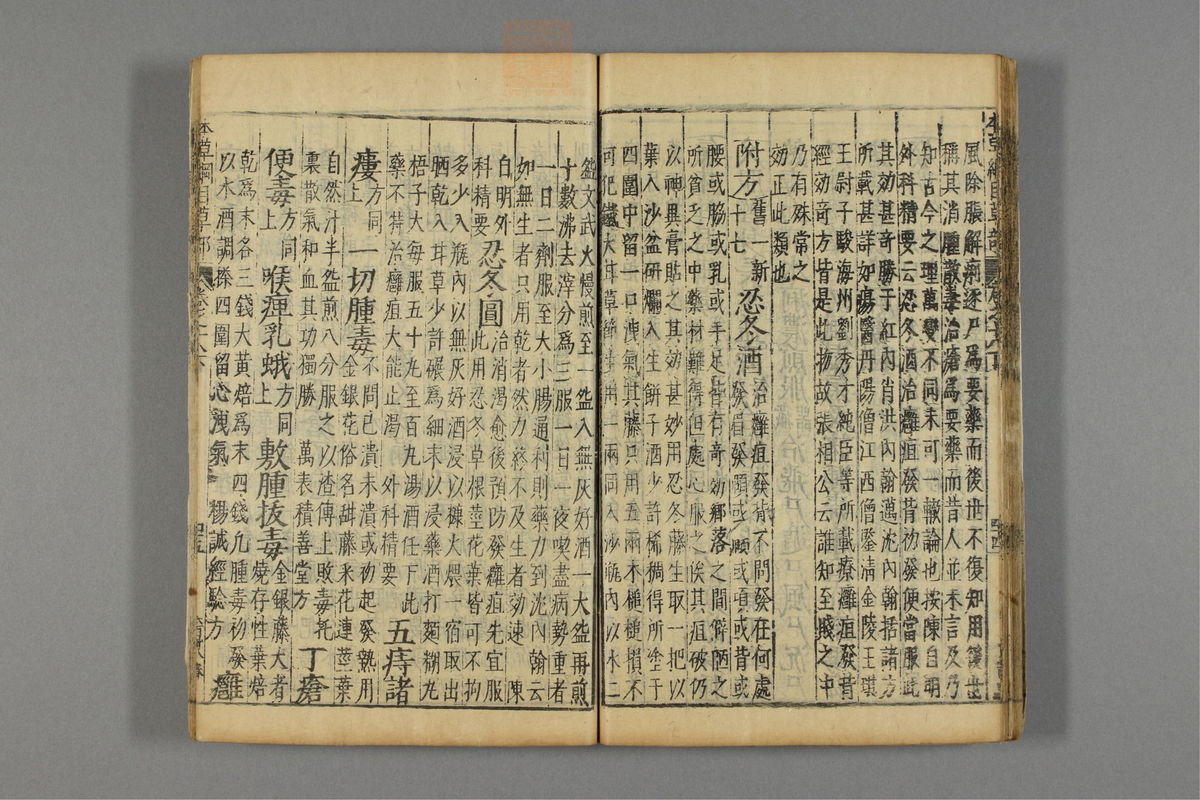 風除脹解痢逐尸爲要藥而後世不復知用後世
稱其消腫散毒治瘡爲要藥而昔人並未言及乃
知古今之理萬變不同未可一轍論也按陳自明
外科精要云忍冬酒治癰疽發背初發便當服此
其効甚奇勝于紅內消洪內翰邁沈內翰括諸方
所載甚詳如瘍醫丹陽僧江西僧鑒清金陵王琪
王尉子駿海州劉秀才純臣等所載療癰疽發背
經効奇方皆是此物故張相公云誰知至賤之中
乃有殊常之
効正此類也
附方舊一新十七 忍冬酒治癰疽發背不問發在何處發眉發頤或項或背或
腰或脇或乳或手足皆有奇効鄉落之間僻陋之
所貧乏之中藥材難得但處心服之俟其疽破仍
以神異膏貼之其効甚妙用忍冬藤生取一把以
葉入沙盆研爛入生餅子酒少許稀稠得所塗于
四圍中留一口洩氣其藤只用五兩木槌槌損不
可犯鐵大甘草節生用一兩同入沙瓶內以水二
盌文武火慢煎至一盌入無灰好酒一大盌再煎
十數沸去滓分爲三服一日一夜喫盡病勢重者
一日二劑服至大小腸通利則藥力到沈內翰云
如無生者只用乾者然力終不及生者効速 陳
自明外科精要 忍冬圓治消渴愈後預防發癰疽先宜服此用忍冬草根莖花葉皆可不拘
多少入瓶內以無灰好酒浸以糠火煨一宿取出
晒乾入甘草少許碾爲細末以浸藥酒打麵糊丸
梧子大每服五十丸至百丸湯酒任下此
藥不特治癰疽大能止渴 外科精要 五痔諸
瘻方同上 一切腫毒不問已潰未潰或初起發熱用金銀花俗名甜藤采花連莖葉
自然汁半盌煎八分服之以渣傅上敗毒托
裏散氣和血其功獨勝 萬表積善堂方 丁瘡
便毒方同上 喉痺乳蛾方同上 敷腫拔毒金銀藤大者燒存性葉焙
乾爲末各三錢大黃焙爲末四錢凡腫毒初發
以水酒調搽四圍留心洩氣 楊誠經驗方 癰